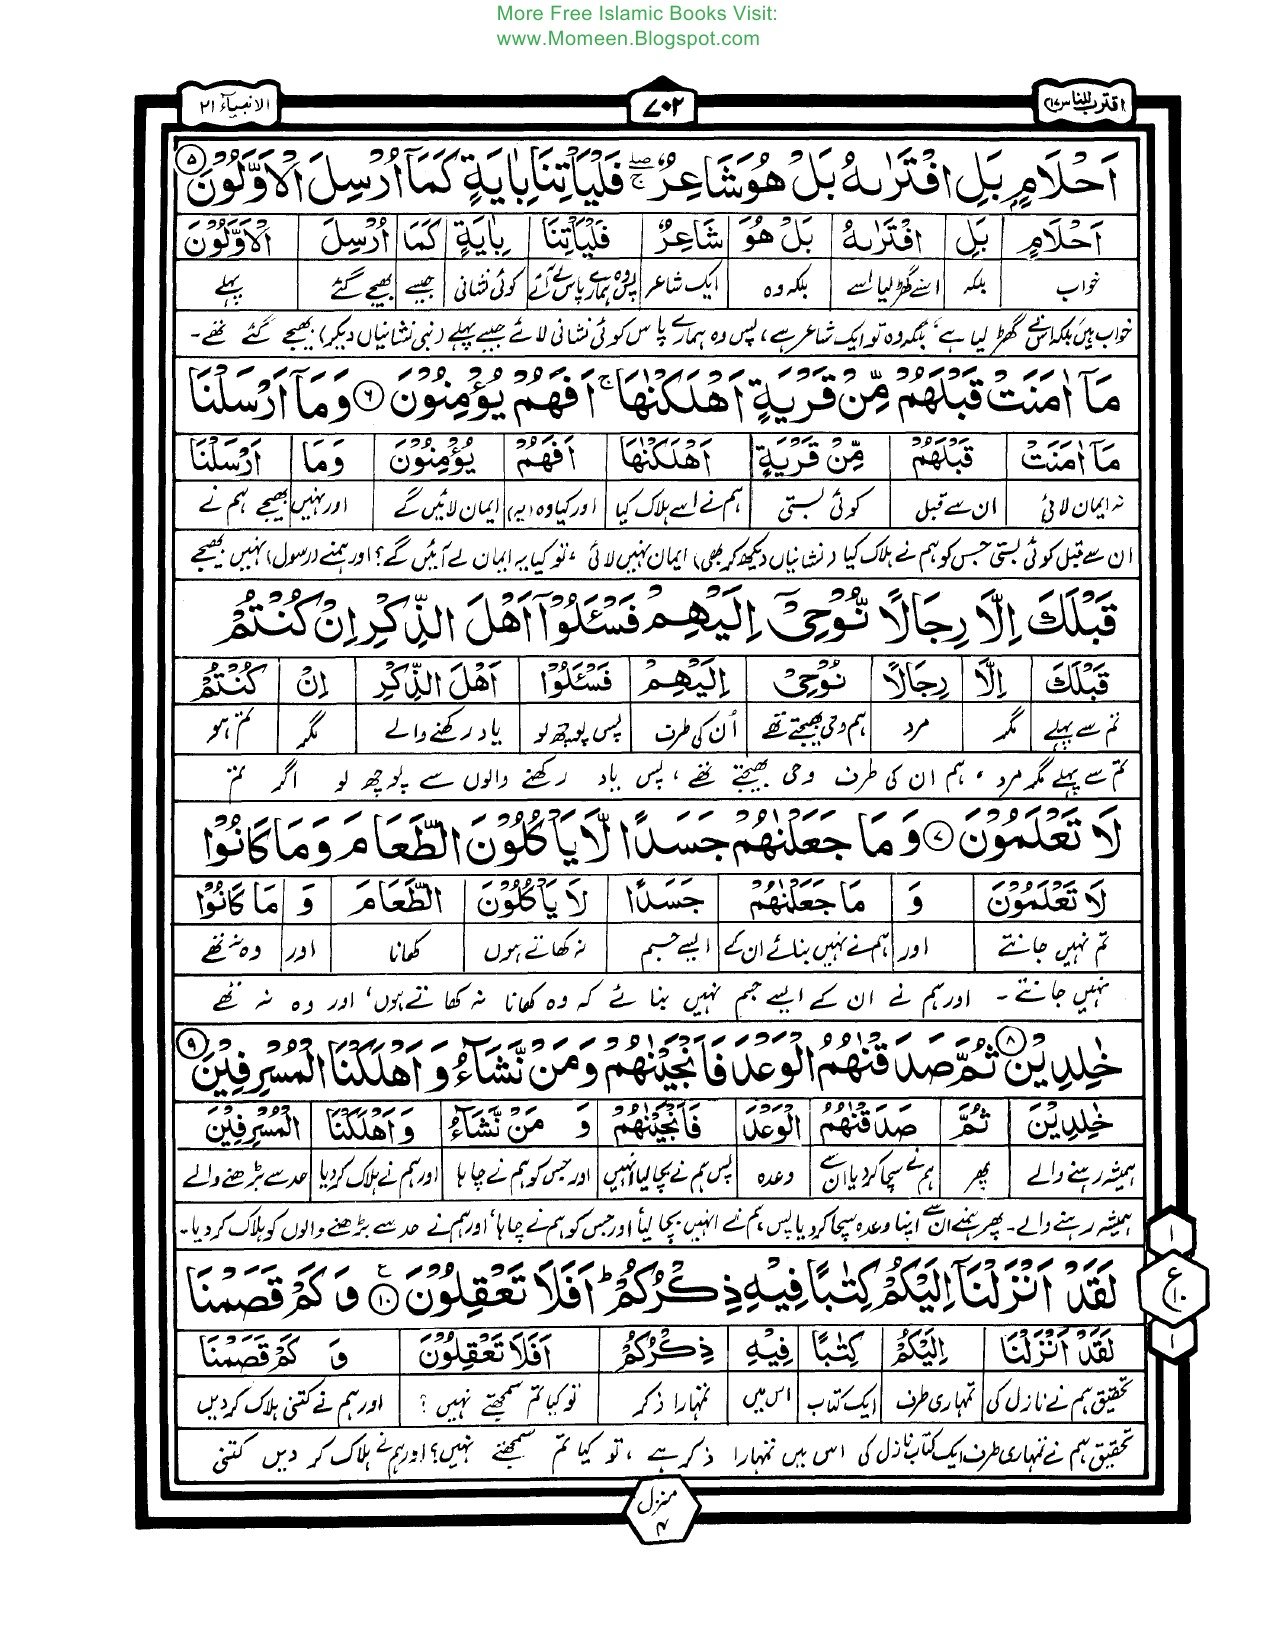 More Free Islamic Books Visit:
www.Momeen.Blogspot.com
اقترب للناس ۱۷
۷۰۲
الانبیآء ۲۱
اَحْلَامٍۭ بَلِ افْتَرٰىهُ بَلْ هُوَ شَاعِرٌ ۖۚ فَلْيَاْتِنَا بِاٰيَةٍ كَمَآ اُرْسِلَ الْاَوَّلُوْنَ ۵
اَحْلَامٍۭ بَلِ افْتَرٰىهُ بَلْ هُوَ شَاعِرٌ فَلْيَاْتِنَا بِاٰيَةٍ كَمَآ اُرْسِلَ الْاَوَّلُوْنَ
خواب بلکہ اسنے گھڑ لیا اسے بلکہ وہ ایک شاعر پس وہ ہمارے پاس لے آئے کوئی نشانی جیسے بھیجے گئے پہلے
خواب ہیں بلکہ اسنے گھڑ لیا ہے، بلکہ وہ تو ایک شاعر ہے، پس وہ ہمارے پاس کوئی نشانی لائے جیسے پہلے (نبی نشانیاں دیکر) بھیجے گئے تھے۔
مَآ اٰمَنَتْ قَبْلَهُمْ مِّنْ قَرْيَةٍ اَهْلَكْنٰهَا ۚ اَفَهُمْ يُؤْمِنُوْنَ ۶ وَمَآ اَرْسَلْنَا
مَآ اٰمَنَتْ قَبْلَهُمْ مِّنْ قَرْيَةٍ اَهْلَكْنٰهَا اَفَهُمْ يُؤْمِنُوْنَ وَمَآ اَرْسَلْنَا
نہ ایمان لائی ان سے قبل کوئی بستی ہم نے اسے ہلاک کیا اور کیا وہ (یہ) ایمان لائیں گے اور نہیں بھیجے ہم نے
ان سے قبل کوئی بستی جس کو ہم نے ہلاک کیا (نشانیاں دیکھ کر بھی) ایمان نہیں لائی، تو کیا یہ ایمان لے آئیں گے؟ اور ہمنے (رسول) نہیں بھیجے
قَبْلَكَ اِلَّا رِجَالًا نُّوْحِيْٓ اِلَيْهِمْ فَسْـَٔلُوْٓا اَهْلَ الذِّكْرِ اِنْ كُنْتُمْ
قَبْلَكَ اِلَّا رِجَالًا نُوْحِيْٓ اِلَيْهِمْ فَسْـَٔلُوْٓا اَهْلَ الذِّكْرِ اِنْ كُنْتُمْ
تم سے پہلے مگر مرد ہم وحی بھیجتے تھے اُن کی طرف پس پوچھ لو یاد رکھنے والے مگر تم ہو
تم سے پہلے مگر مرد، ہم ان کی طرف وحی بھیجتے تھے، پس یاد رکھنے والوں سے پوچھ لو اگر تم
لَا تَعْلَمُوْنَ ۷ وَمَا جَعَلْنٰهُمْ جَسَدًا لَّا يَاْكُلُوْنَ الطَّعَامَ وَمَا كَانُوْا
لَا تَعْلَمُوْنَ وَ مَا جَعَلْنٰهُمْ جَسَدًا لَا يَاْكُلُوْنَ الطَّعَامَ وَ مَا كَانُوْا
تم نہیں جانتے اور ہم نے نہیں بنائے ان کے ایسے جسم نہ کھاتے ہوں کھانا اور وہ نہ تھے
نہیں جانتے۔ اور ہم نے ان کے ایسے جسم نہیں بنائے کہ وہ کھانا نہ کھاتے ہوں، اور وہ نہ تھے
خٰلِدِيْنَ ۸ ثُمَّ صَدَقْنٰهُمُ الْوَعْدَ فَاَنْجَيْنٰهُمْ وَمَنْ نَّشَآءُ وَاَهْلَكْنَا الْمُسْرِفِيْنَ ۹
خٰلِدِيْنَ ثُمَّ صَدَقْنٰهُمُ الْوَعْدَ فَاَنْجَيْنٰهُمْ وَ مَنْ نَّشَآءُ وَاَهْلَكْنَا الْمُسْرِفِيْنَ
ہمیشہ رہنے والے پھر ہم نے سچا کر دیا ان سے وعدہ پس ہم نے بچا لیا انہیں اور جس کو ہم نے چاہا اور ہم نے ہلاک کر دیا حد سے بڑھنے والے
ہمیشہ رہنے والے۔ پھر ہمنے ان سے اپنا وعدہ سچا کر دیا پس ہم نے انہیں بچا لیا اور جس کو ہم نے چاہا، اور ہم نے حد سے بڑھنے والوں کو ہلاک کر دیا۔
لَقَدْ اَنْزَلْنَآ اِلَيْكُمْ كِتٰبًا فِيْهِ ذِكْرُكُمْ ؕ اَفَلَا تَعْقِلُوْنَ ۱۰ ع وَكَمْ قَصَمْنَا
۱
ع ۱۰
۱
لَقَدْ اَنْزَلْنَآ اِلَيْكُمْ كِتٰبًا فِيْهِ ذِكْرُكُمْ اَفَلَا تَعْقِلُوْنَ وَ كَمْ قَصَمْنَا
تحقیق ہم نے نازل کی تمہاری طرف ایک کتاب اس میں تمہارا ذکر تو کیا تم سمجھتے نہیں؟ اور ہم نے کتنی ہلاک کر دیں
تحقیق ہم نے تمہاری طرف ایک کتاب نازل کی اس میں تمہارا ذکر ہے، تو کیا تم سمجھتے نہیں؟ اور ہم نے ہلاک کر دیں کتنی
منزل ۴